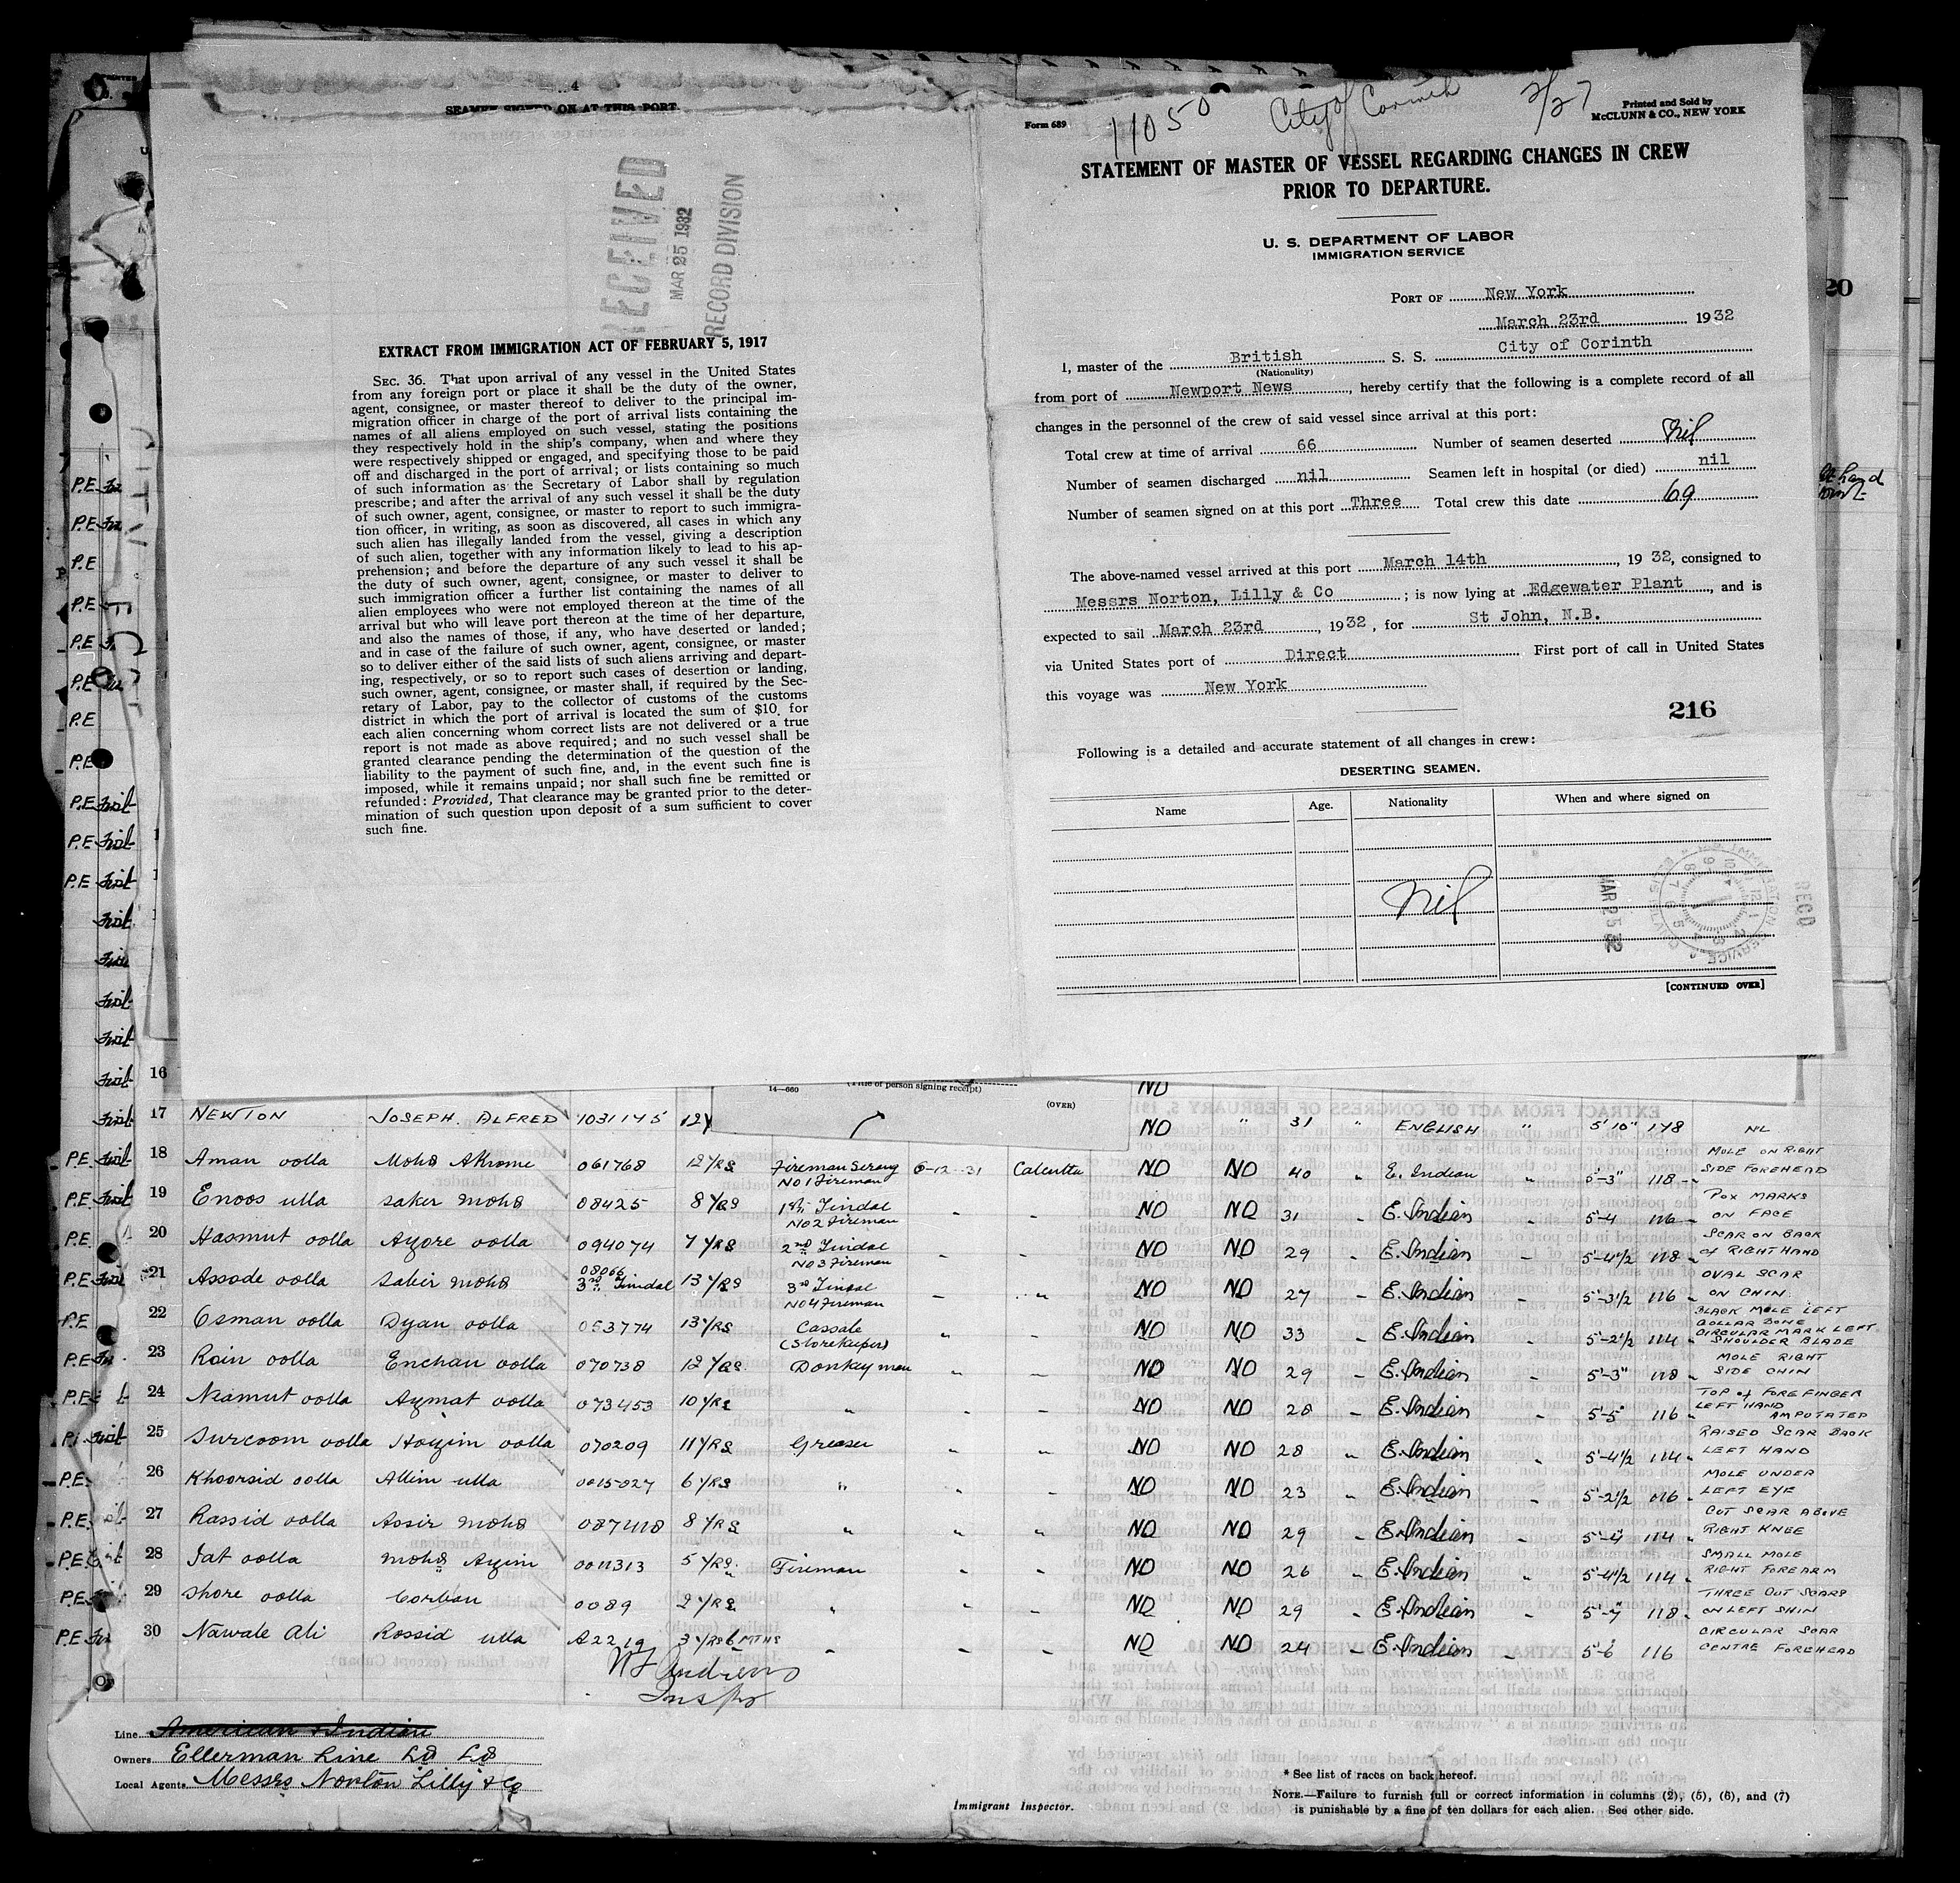 4
SEAMEN SIGNED ON AT THIS PORT.
RECEIVED
MAR 25 1932
RECORD DIVISION
EXTRACT FROM IMMIGRATION ACT OF FEBRUARY 5, 1917
SEC. 36. That upon arrival of any vessel in the United States
from any foreign port or place it shall be the duty of the owner,
agent, consignee, or master thereof to deliver to the principal im-
migration officer in charge of the port of arrival lists containing the
names of all aliens employed on such vessel, stating the positions
they respectively hold in the ship's company, when and where they
were respectively shipped or engaged, and specifying those to be paid
off and discharged in the port of arrival; or lists containing so much
of such information as the Secretary of Labor shall by regulation
prescribe; and after the arrival of any such vessel it shall be the duty
of such owner, agent, consignee, or master to report to such immigra-
tion officer, in writing, as soon as discovered, all cases in which any
such alien has illegally landed from the vessel, giving a description
of such alien, together with any information likely to lead to his ap-
prehension; and before the departure of any such vessel it shall be
the duty of such owner, agent, consignee, or master to deliver to
such immigration officer a further list containing the names of all
alien employees who were not employed thereon at the time of the
arrival but who will leave port thereon at the time of her departure,
and also the names of those, if any, who have deserted or landed;
and in case of the failure of such owner, agent, consignee, or master
so to deliver either of the said lists of such aliens arriving and depart-
ing, respectively, or so to report such cases of desertion or landing,
such owner, agent, consignee, or master shall, if required by the Sec-
retary of Labor, pay to the collector of customs of the customs
district in which the port of arrival is located the sum of $10 for
each alien concerning whom correct lists are not delivered or a true
report is not made as above required; and no such vessel shall be
granted clearance pending the determination of the question of the
liability to the payment of such fine, and, in the event such fine is
imposed, while it remains unpaid; nor shall such fine be remitted or
refunded: Provided, That clearance may be granted prior to the deter-
mination of such question upon deposit of a sum sufficient to cover
such fine.
Form 689
11050 City of Corinth 2/27
Printed and Sold by
McCLUNN & CO., NEW YORK
STATEMENT OF MASTER OF VESSEL REGARDING CHANGES IN CREW
PRIOR TO DEPARTURE.
U. S. DEPARTMENT OF LABOR
IMMIGRATION SERVICE
PORT OF New York
March 23rd 1932
I, master of the British S. S. City of Corinth
(Nationality)
from port of Newport News, hereby certify that the following is a complete record of all
changes in the personnel of the crew of said vessel since arrival at this port:
Total crew at time of arrival 66 Number of seamen deserted Nil
Number of seamen discharged nil Seamen left in hospital (or died) nil
Number of seamen signed on at this port Three Total crew this date 69
The above-named vessel arrived at this port March 14th, 1932, consigned to
Messrs Norton, Lilly & Co; is now lying at Edgewater Plant, and is
expected to sail March 23rd, 1932, for St John, N.B.
via United States port of Direct First port of call in United States
this voyage was New York
216
Following is a detailed and accurate statement of all changes in crew:
DESERTING SEAMEN.
Name Age. Nationality When and where signed on
Nil
MAR 25 32
RECD
[CONTINUED OVER]
20
16
14-660 (Title of person signing receipt) NO
(OVER)
17 NEWTON JOSEPH. ALFRED 1031145 12Y NO " 31 ENGLISH " 5'10" 178 NIL
P.E. 18 Aman oolla Mohd Akrome 061768 12 YRS Fireman Serang No 1 Fireman 6-12-31 Calcutta NO NO 40 " E. Indian " 5'-3" 118 MOLE ON RIGHT SIDE FOREHEAD
P.E. 19 Enoos ulla saker mohd 08425 8 YRS 1st Tindal No 2 Fireman NO NO 31 E. Indian 5'-4 116 POX MARKS ON FACE
P.E. 20 Hasmut oolla Ayore oolla 094074 7 YRS 2nd Tindal No 3 Fireman NO NO 29 E. Indian 5'-4½ 118 SCAR ON BACK of RIGHT HAND
P.E. 21 Assode oolla sabir mohd 08066 3rd Tindal 13 YRS 3rd Tindal No 4 Fireman NO NO 27 E. Indian 5'-3½ 116 OVAL SCAR ON CHIN
P.E 22 Osman oolla Dyan oolla 053774 13 YRS Cassab (Storekeeper) NO NO 33 E. Indian 5'-2½ 114 BLACK MOLE LEFT COLLAR BONE CIRCULAR MARK LEFT SHOULDER BLADE
P.E 23 Roin oolla Enchan oolla 070738 12 YRS Donkeyman NO NO 29 E. Indian 5'-3" 118 MOLE RIGHT SIDE CHIN
P.E 24 Neamut oolla Aymat oolla 073453 10 YRS " NO NO 28 E. Indian 5'-5" 116 TOP of FOREFINGER LEFT HAND AMPUTATED
25 Surcoom oolla Hoyim oolla 070209 11 YRS Greaser NO NO 28 E. Indian 5'-4½ 114 RAISED SCAR BACK LEFT HAND
P.E. 26 Khoorsid oolla Allim ulla 0015027 6 YRS " NO NO 23 E. Indian 5'-2½ 116 MOLE UNDER LEFT EYE
P.E. 27 Rassid oolla Assir mohd 087418 8 YRS " NO NO 29 E. Indian 5'-4" 114 CUT SCAR ABOVE RIGHT KNEE
P.E. 28 Jat oolla mohd Ayim 0011313 5 YRS Fireman NO NO 26 E. Indian 5'-4½ 114 SMALL MOLE RIGHT FOREARM
P.E. 29 Shore oolla Corban 0089 2 YRS " NO NO 29 E. Indian 5'-7" 118 THREE CUT SCARS ON LEFT SHIN
P.E 30 Nawale Ali Rossid ulla A2219 3 YRS 6 MTHS NO NO 24 E. Indian 5-6 116 CIRCULAR SCAR CENTRE FOREHEAD
Andrews
Line American & Indian
Owners Ellerman Line Ld Ld
Local Agents Messrs Norton Lilly & Co
Immigrant Inspector.
* See list of races on back hereof.
NOTE.—Failure to furnish full or correct information in columns (2), (5), (6), and (7)
is punishable by a fine of ten dollars for each alien. See other side.